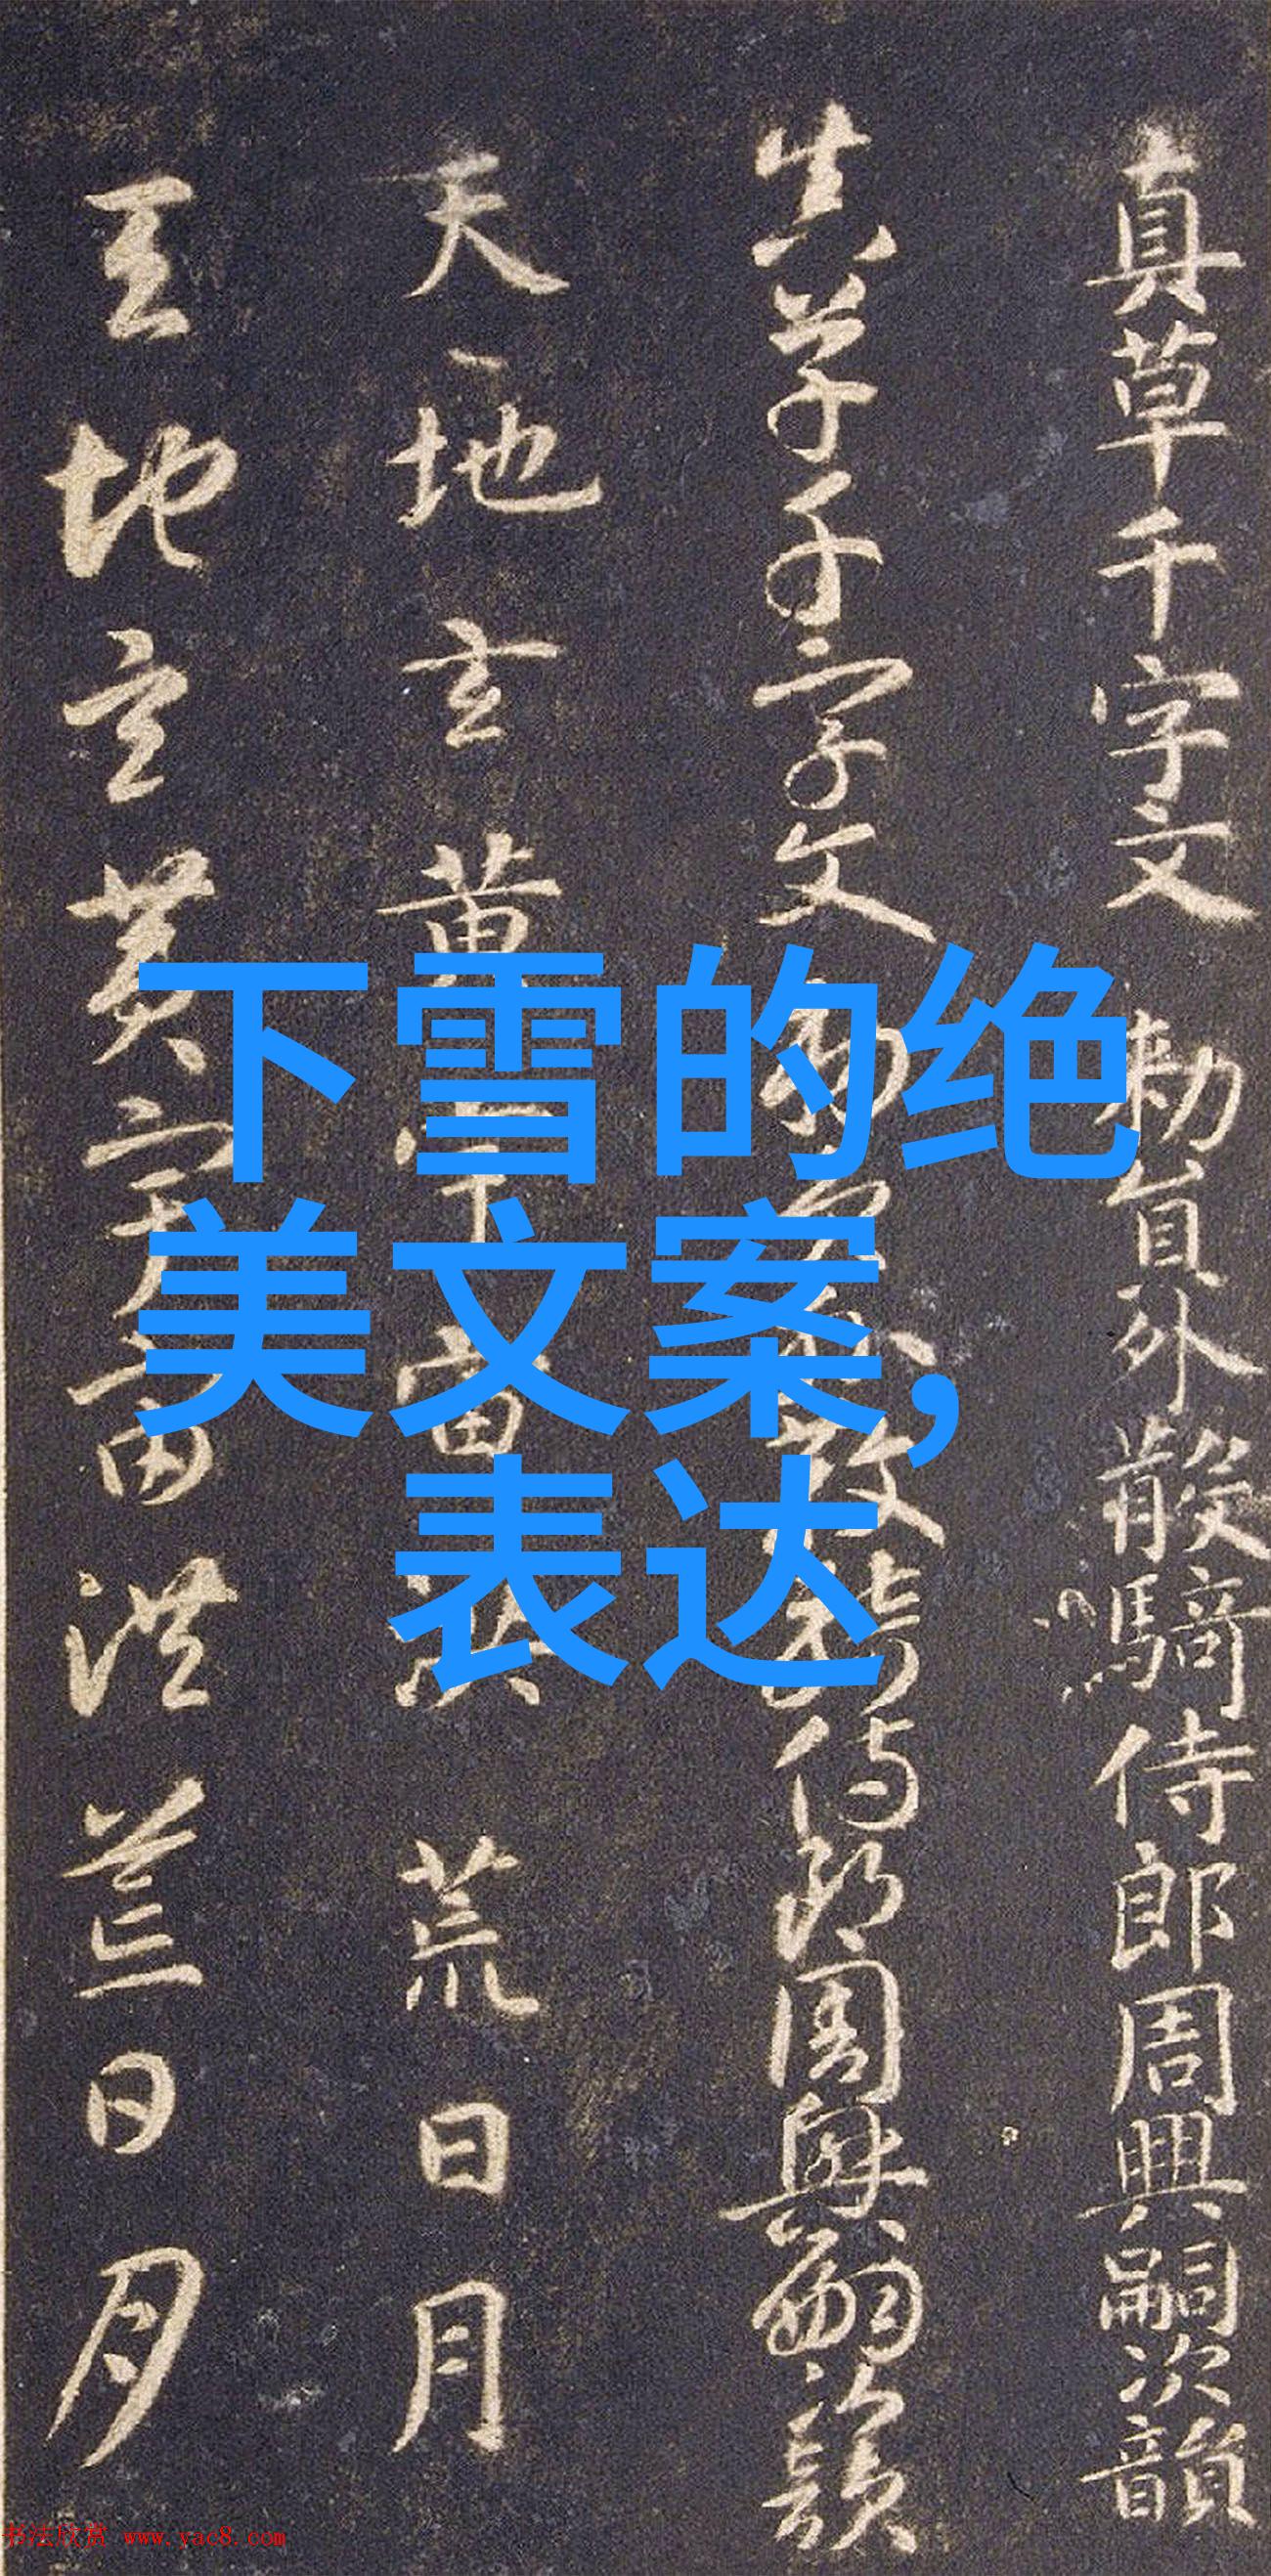 真草千字文 勅員外散騎侍郎周興嗣次韻
真草千字文 勅員外散騎侍郎周興嗣次韻
天地玄黄宇宙洪荒日月
天地玄黄宇宙洪荒日月
下雪的绝
美文案,
表达
书法欣赏 www.yac8.com